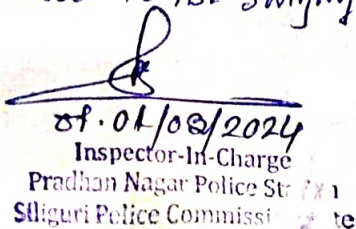 Dt. 01/08/2024
Inspector-In-Charge
Pradhan Nagar Police St
Siliguri Police Commissi te